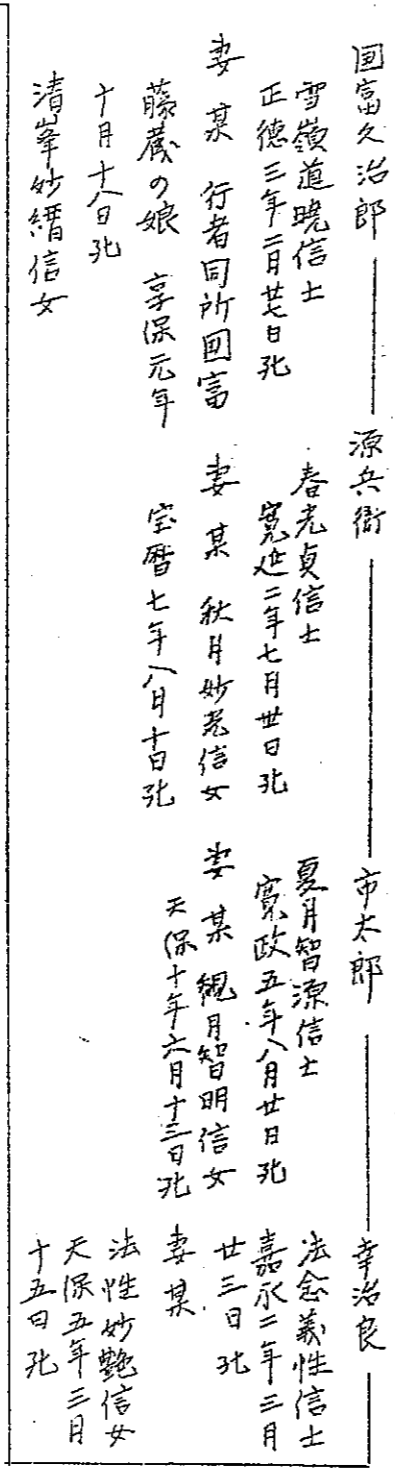 国富久治郎
雪嶺道暁信士
正徳三年二月廿七日死
妻 某 行者同所国富
藤蔵の娘 享保元年
十月十八日死
清峯妙縉信女
源兵衛
春光貞信士
寛延二年七月廿日死
妻 某 秋月妙光信女
宝暦七年八月十日死
市太郎
夏月智源信士
寛政五年八月廿日死
妻 某 観月智明信女
天保十年六月十三日死
幸治良
法念義性信士
嘉永二年三月
廿三日死
妻某
法性妙艶信女
天保五年三月
十五日死